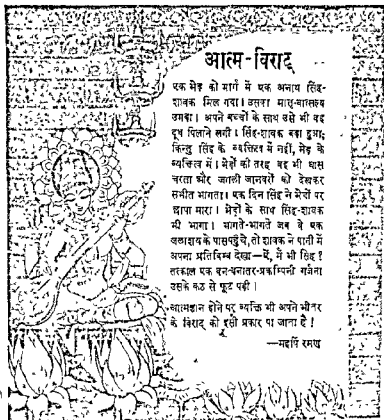 आत्म-विराट्
एक भेड़ को मार्ग में एक अनाथ सिंह-
शावक मिल गया। उसका मातृ-वात्सल्य
उमड़ा। अपने बच्चों के साथ उसे भी वह
दूध पिलाने लगी। सिंह-शावक बड़ा हुआ;
किन्तु सिंह के व्यक्तित्व में नहीं, भेड़ के
व्यक्तित्व में। भेड़ों की तरह वह भी घास
चरता और जंगली जानवरों को देखकर
सभीत भागता। एक दिन सिंह ने भेड़ों पर
छापा मारा। भेड़ों के साथ सिंह-शावक
भी भागा। भागते-भागते जब वे एक
जलाशय के पास पहुंचे, तो शावक ने पानी में
अपना प्रतिबिम्ब देखा—मैं, मैं भी सिंह?
तत्काल एक वन-धनान्तर-प्रकम्पिनी गर्जना
उसके कंठ से फूट पड़ी।
आत्मज्ञान होने पर व्यक्ति भी अपने भीतर
के विराट् को इसी प्रकार पा जाता है!
—महर्षि रमण